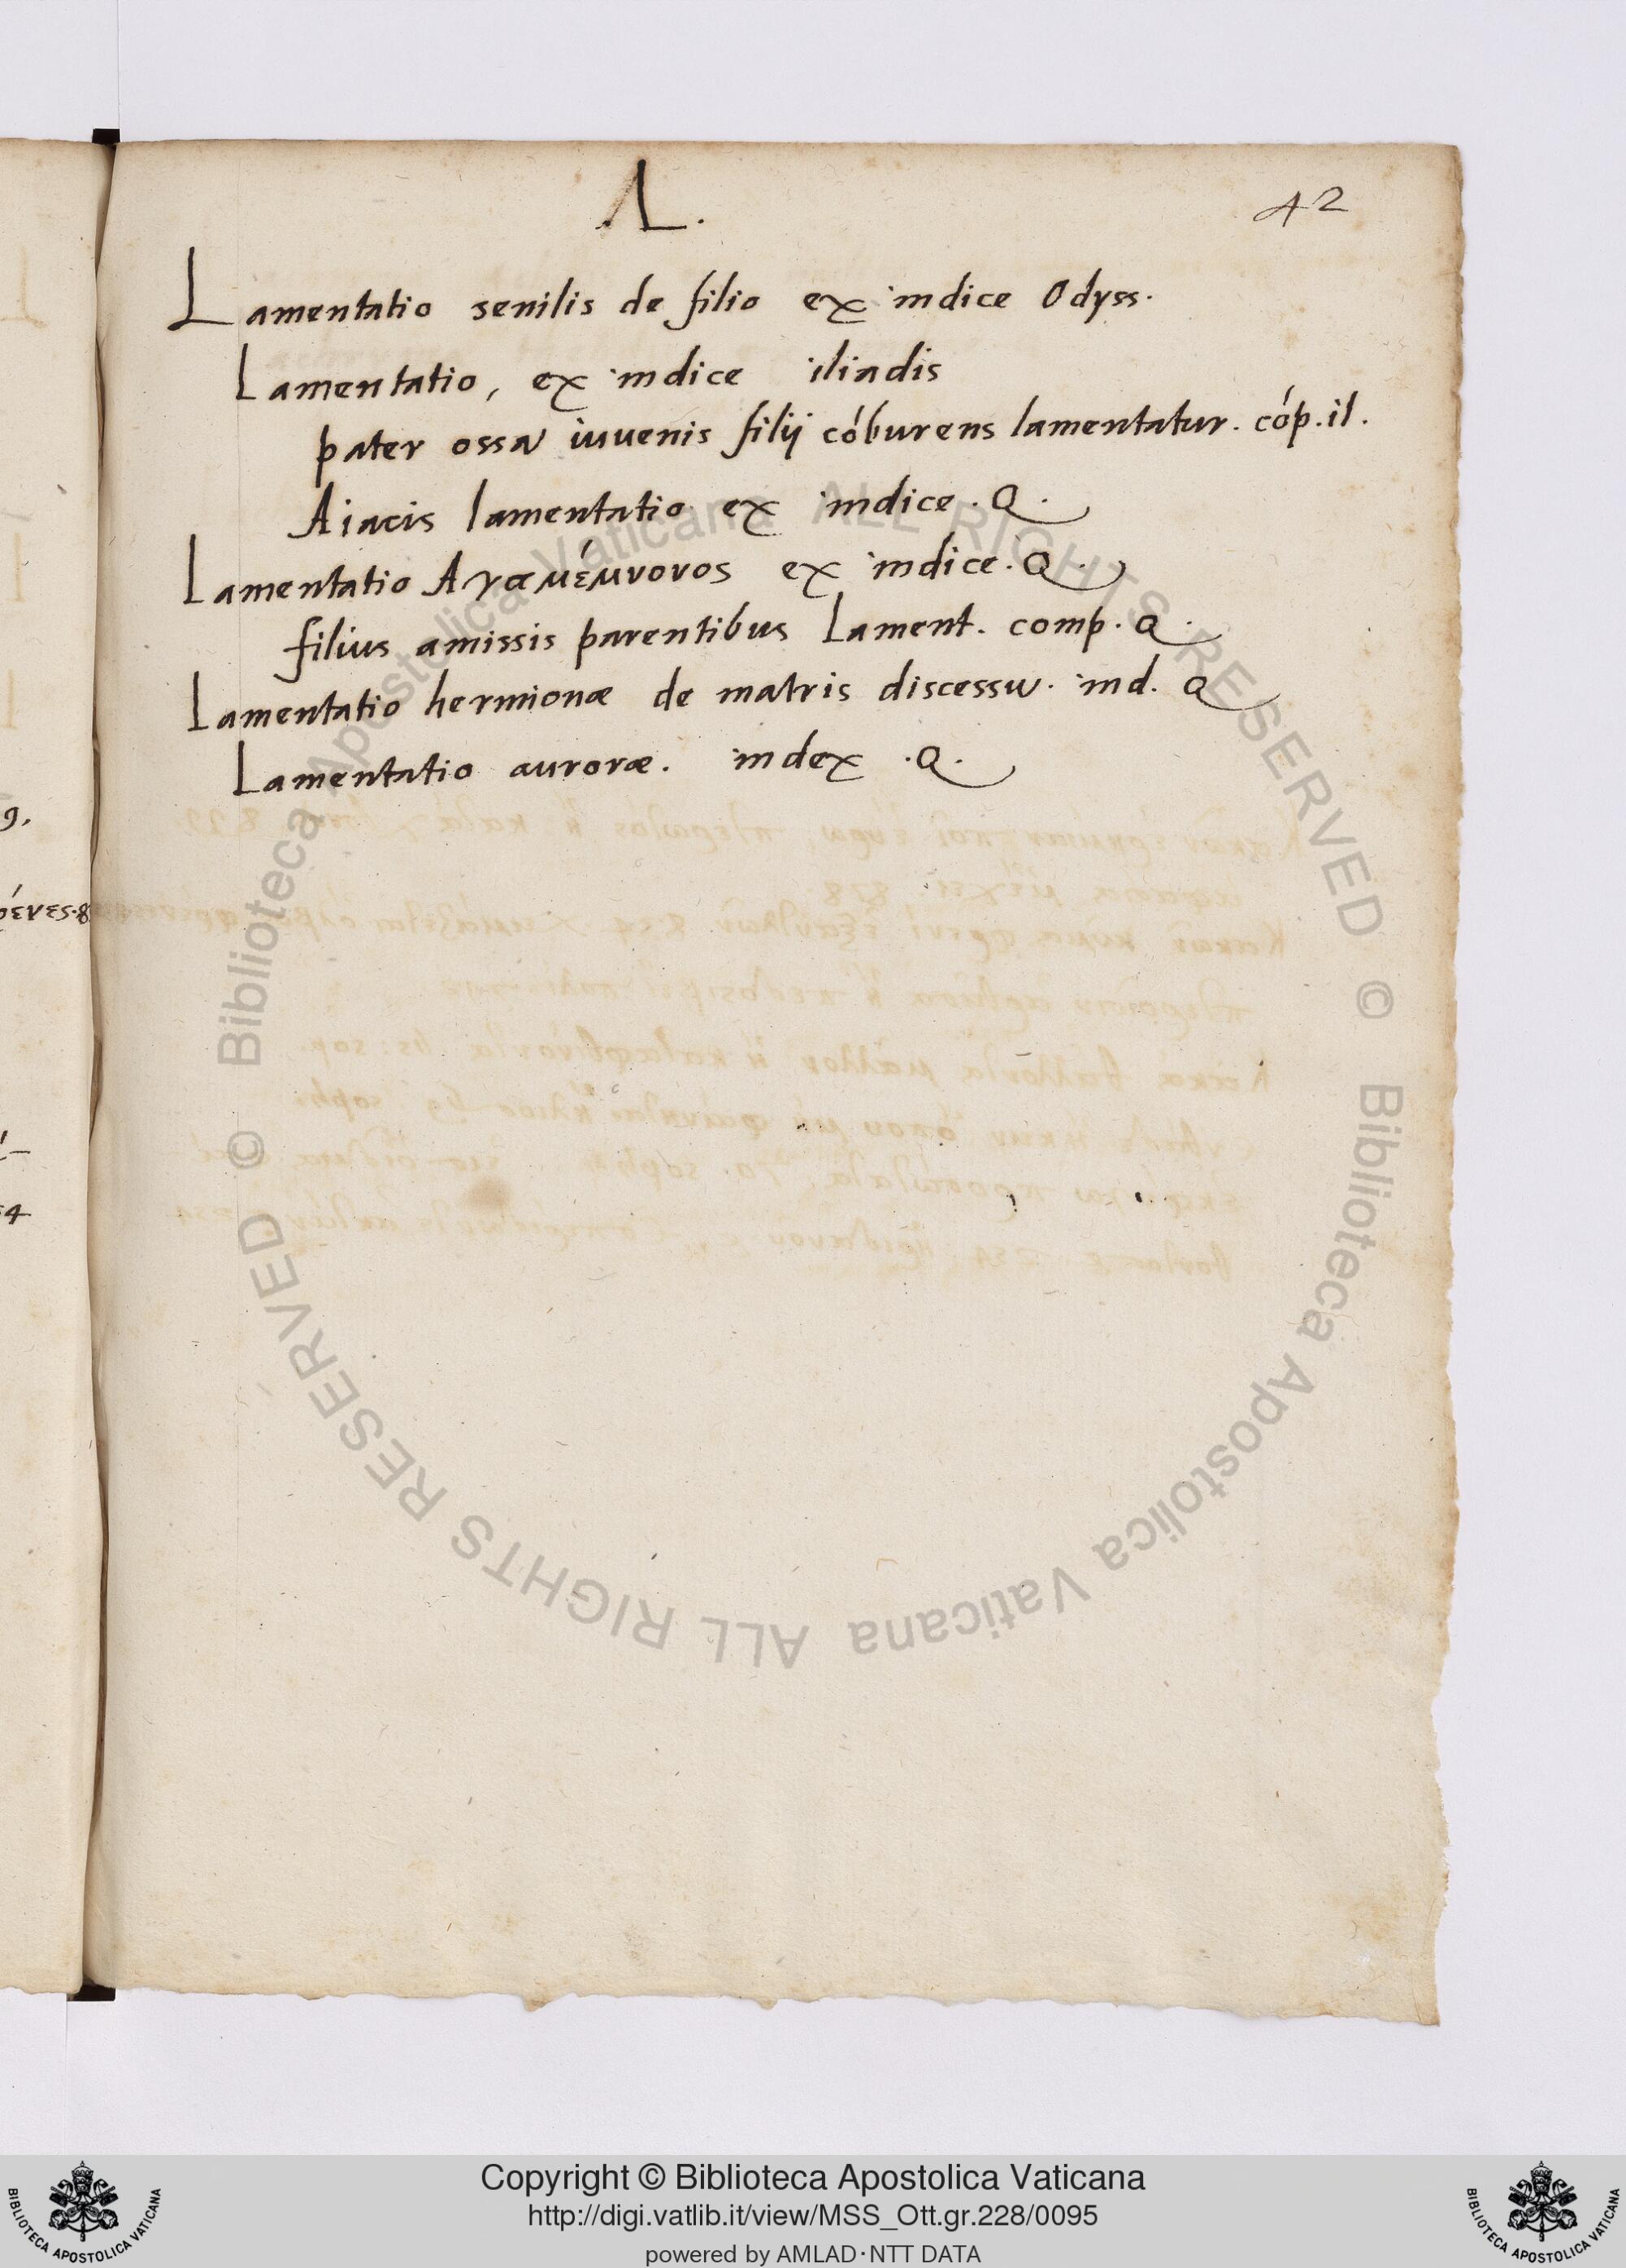 Λ.
42
Lamentatio senilis de filio ex indice Odyss.
Lamentatio, ex indice iliadis
pater ossa iuvenis filij cóburens lamentatur. cóp. il.
Aiacis lamentatio ex indice . Q .
Lamentatio Αγαμέμνονος ex indice . Q .
filius amissis parentibus Lament. comp. Q .
Lamentatio hermionæ de matris discessu. ind. Q
Lamentatio auroræ. index . Q .
© Biblioteca Apostolica Vaticana ALL RIGHTS RESERVED
© Biblioteca Apostolica Vaticana ALL RIGHTS RESERVED
Copyright © Biblioteca Apostolica Vaticana
http://digi.vatlib.it/view/MSS_Ott.gr.228/0095
powered by AMLAD·NTT DATA
BIBLIOTECA APOSTOLICA VATICANA
BIBLIOTECA APOSTOLICA VATICANA